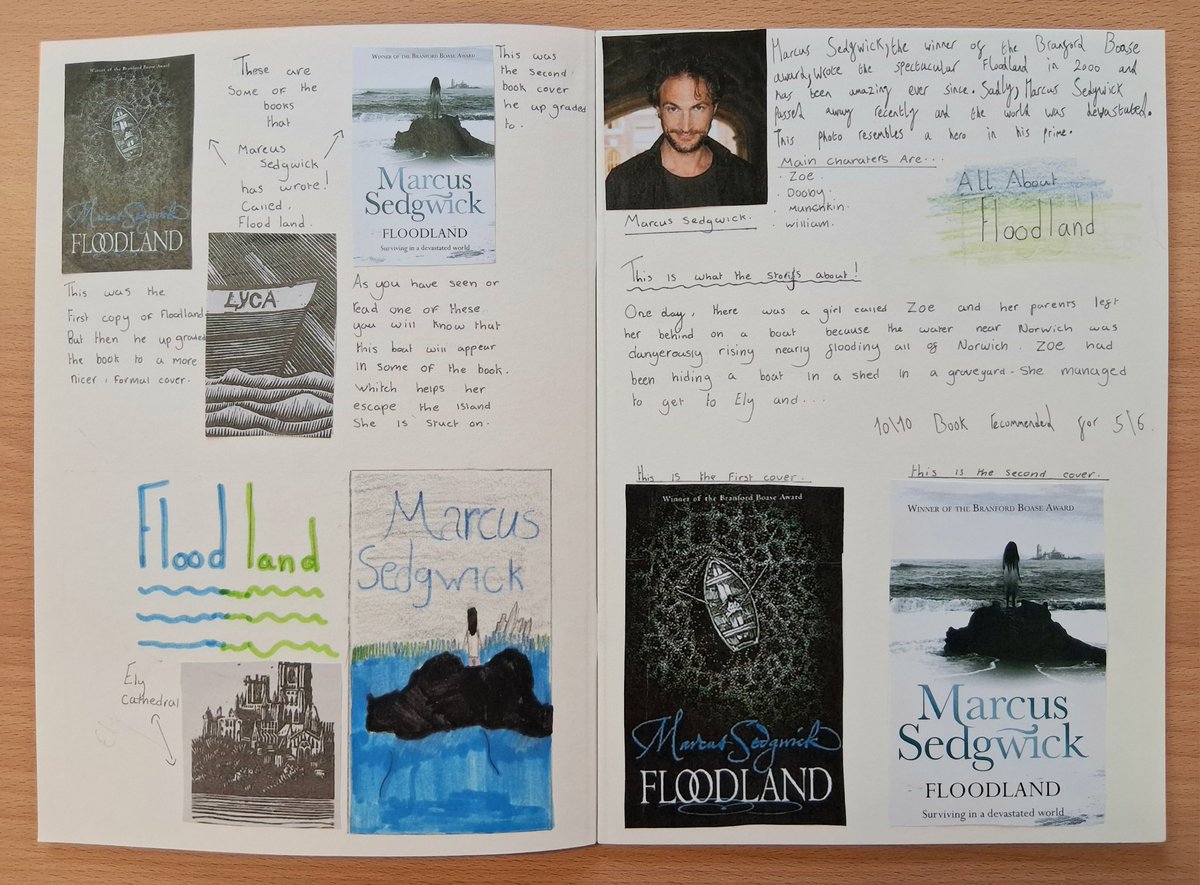 Winner of the Branford Boase Award
Marcus Sedgwick
FLOODLAND
These are
Some of the
books
that
Marcus
Sedgwick
has wrote!
Called,
Flood land.
WINNER OF THE BRANFORD BOASE AWARD
Marcus
Sedgwick
FLOODLAND
Surviving in a devastated world
This was
the second
book cover
he up graded
to.
This was the
First copy of Floodland
But then he upgraded
the book to a more
nicer, formal cover.
LYCA
As you have seen or
read one or these
you will know that
this boat will appear
in some of the book.
Whitch helps her
escape the island
She is stuct on.
Flood land
Ely
Cathedral
Ely
Marcus
Sedgwick
Marcus Sedgwick, the winner of the Branford Boase
award, wrote the spectacular Floodland in 2000 and
has been amazing ever since. Sadly, Marcus Sedgwick
passed away recently and the world was devastated.
This photo resembles a hero in his prime.
Marcus Sedgwick.
Main charaters Are...
· Zoe.
· Dooby
· munchkin.
· william.
All About
Floodland
This is what the storys about!
One day, there was a girl called Zoe and her parents left
her behind on a boat because the water near Norwich was
dangerously rising nearly flooding all of Norwich. Zoe had
been hiding a boat in a shed in a graveyard. She managed
to get to Ely and...
10\10 Book recommended for 5\6.
this is the first cover.
Winner of the Branford Boase Award
Marcus Sedgwick
FLOODLAND
this is the second cover.
WINNER OF THE BRANFORD BOASE AWARD
Marcus
Sedgwick
FLOODLAND
Surviving in a devastated world